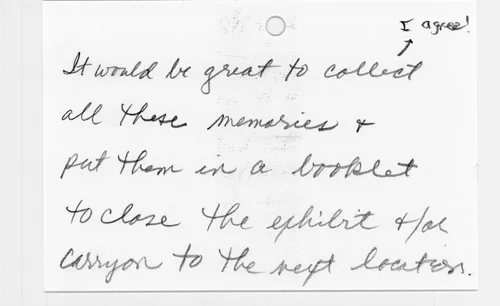 I agree!
It would be great to collect
all these memories &
put them in a booklet
to close the exhibit &/or
carryon to the next location.